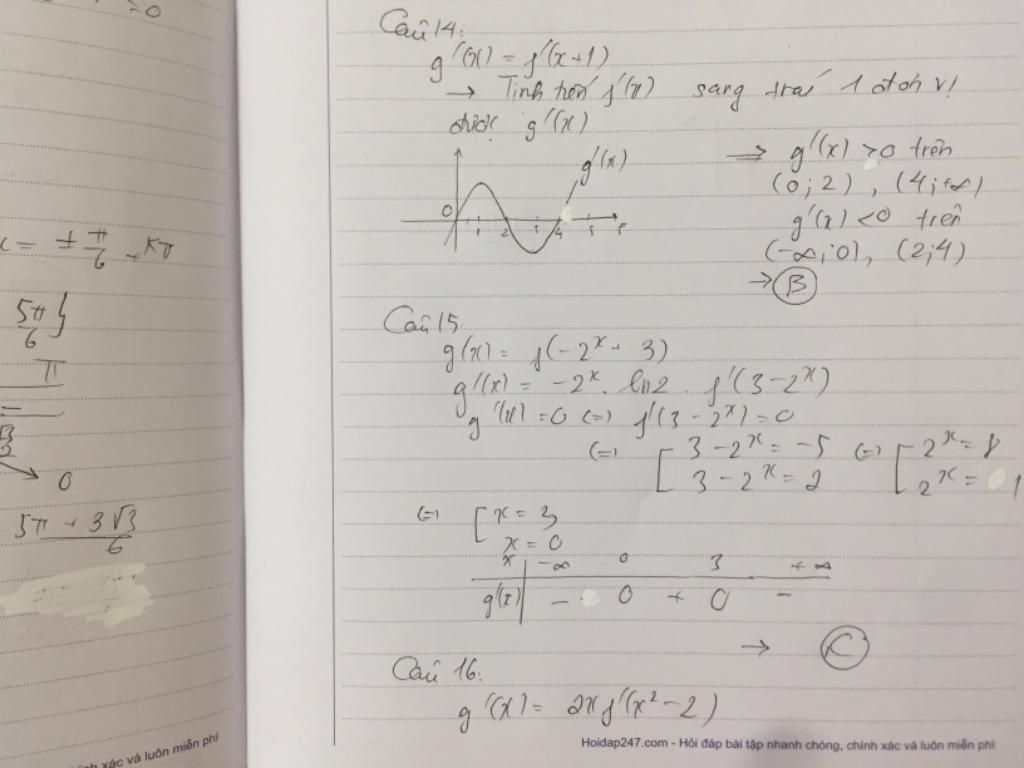 = 0
x = ± π/6 + kπ
5π/6 }
π
√3/2
0
5π + 3√3 / 6
Câu 14:
g'(x) = f'(x+1)
→ Tịnh tiến f'(x) sang trái 1 đơn vị
được g'(x)
g'(x)
0 1 2 3 4 5
=> g'(x) > 0 trên
(0; 2), (4; +∞)
g'(x) < 0 trên
(-∞; 0), (2; 4)
→ B
Câu 15
g(x) = f(-2^x + 3)
g'(x) = -2^x . ln2 . f'(3 - 2^x)
g'(x) = 0 (=) f'(3 - 2^x) = 0
(=) [ 3 - 2^x = -5 (=) [ 2^x = 8
3 - 2^x = 2 2^x = 1
(=) [ x = 3
x = 0
x | -∞ 0 3 +∞
g'(x) | - 0 + 0 -
→ C
Câu 16:
g'(x) = 2x f'(x² - 2)
xác và luôn miễn phí
Hoidap247.com - Hỏi đáp bài tập nhanh chóng, chính xác và luôn miễn phí